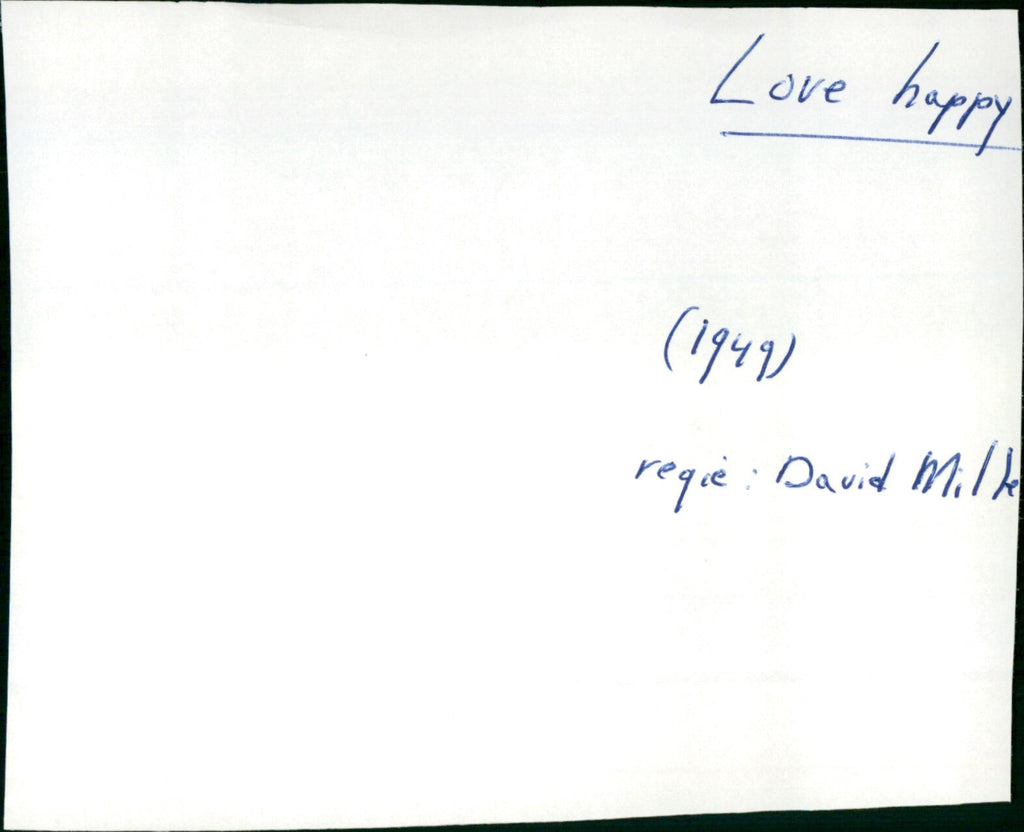 Love happy
(1949)
regie: David Mille